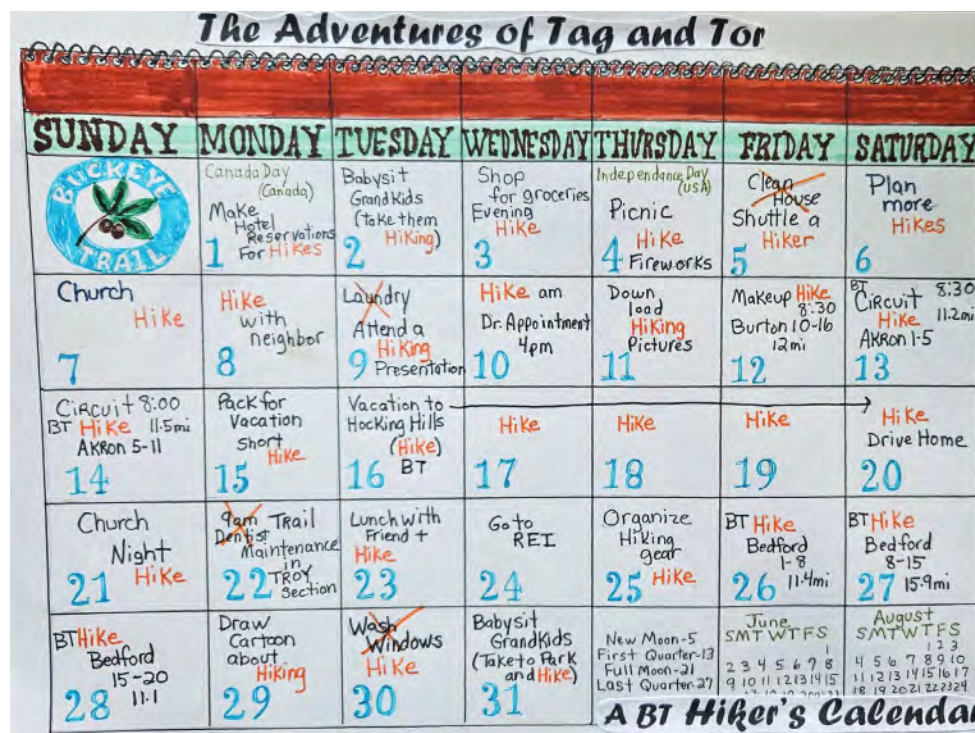 The Adventures of Tag and Tor
SUNDAY MONDAY TUESDAY WEDNESDAY THURSDAY FRIDAY SATURDAY
BUCKEYE
TRAIL
Canada Day
(Canada)
Make
Hotel
Reservations
For Hikes
1
Babysit
GrandKids
(take them
Hiking)
2
Shop
for groceries
Evening
Hike
3
Independance Day
(USA)
Picnic
Hike
Fireworks
4
Clean
House
Shuttle a
Hiker
5
Plan
more
Hikes
6
Church
Hike
7
Hike
with
neighbor
8
Laundry
Attend a
Hiking
Presentation
9
Hike am
Dr. Appointment
4pm
10
Down
load
Hiking
Pictures
11
Makeup Hike
8:30
Burton 10-16
12mi
12
BT
Circuit 8:30
Hike 11.2mi
AKRON 1-5
13
Circuit 8:00
BT Hike 11.5mi
AKRON 5-11
14
Pack for
Vacation
Short
Hike
15
Vacation to
Hocking Hills
(Hike)
BT
16
Hike
17
Hike
18
Hike
19
Hike
Drive Home
20
Church
Night
Hike
21
9am Trail
Dentist
Maintenance
in
TROY
Section
22
Lunch with
Friend +
Hike
23
Go to
REI
24
Organize
Hiking
gear
Hike
25
BT Hike
Bedford
1-8
11.4mi
26
BT Hike
Bedford
8-15
15.9mi
27
BT Hike
Bedford
15-20
11.1
28
Draw
Cartoon
about
Hiking
29
Wash
Windows
Hike
30
Babysit
GrandKids
(Take to Park
and Hike)
31
New Moon-5
First Quarter-13
Full Moon-21
Last Quarter-27
June
S M T W T F S
1
2 3 4 5 6 7 8
9 10 11 12 13 14 15
August
S M T W T F S
1 2 3
4 5 6 7 8 9 10
11 12 13 14 15 16 17
18 19 20 21 22 23 24
A BT Hiker's Calendar